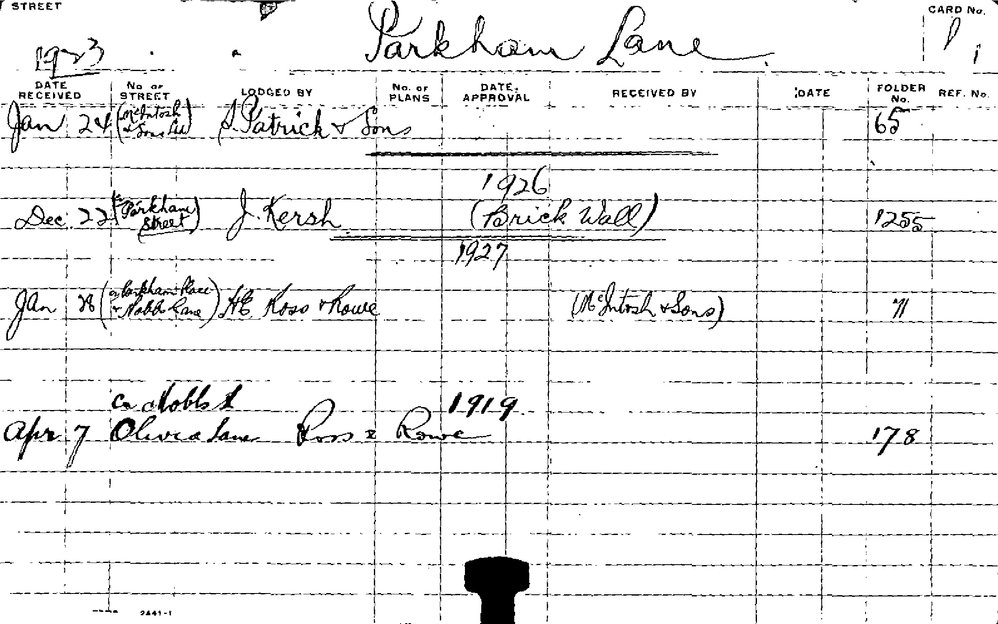 STREET
CARD No.
Parkham Lane
1
1923
DATE RECEIVED
No. of STREET
LODGED BY
No. of PLANS
DATE, APPROVAL
RECEIVED BY
DATE
FOLDER No.
REF. No.
Jan 24 (McIntosh & Sons Ltd) S. Patrick & Sons 65
1926
Dec 22 (Parkham Street) J. Kersh (Brick Wall) 1255
1927
Jan 28 (Parkham Place & Nobbs Lane) H.E. Ross & Rowe (McIntosh & Sons) 71
Co Nobbs 1919
Apr 7 Olivia Lane Ross & Rowe 178
2441-1